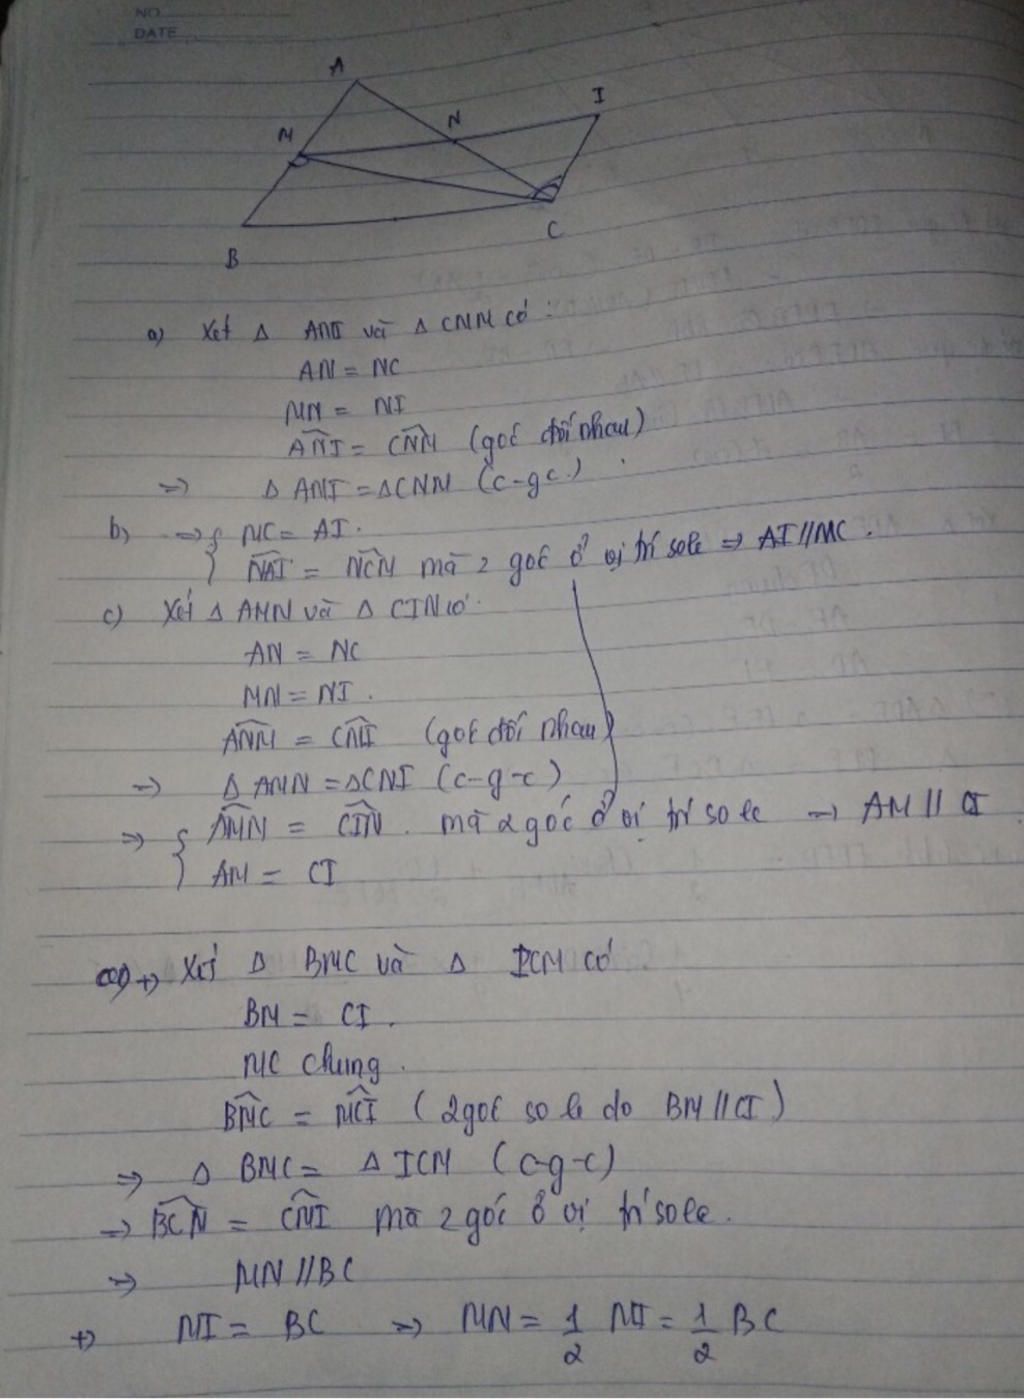 NO
DATE
A
I
M
N
C
B
a) Xét Δ ANI và Δ CNM có :
AN = NC
MN = NI
ANI = CNM (góc đối nhau)
=> Δ ANI = Δ CNM (c-g-c)
b) => { MC = AI.
NAI = NCM mà 2 góc ở vị trí sole => AI // MC.
c) Xét Δ AMN và Δ CIN có
AN = NC
MN = NI.
ANM = CNI (góc đối nhau)
=> Δ AMN = Δ CNI (c-g-c)
=> { AMN = CIN. mà 2 góc ở vị trí so le => AM // CI
AM = CI
+) Xét Δ BMC và Δ ICM có
BM = CI.
MC chung.
BMC = MCI (2 góc so le do BM // CI)
=> Δ BMC = Δ ICM (c-g-c)
=> BCM = CMI mà 2 góc ở vị trí sole.
=> MN // BC
+) MI = BC => MN = 1/2 MI = 1/2 BC